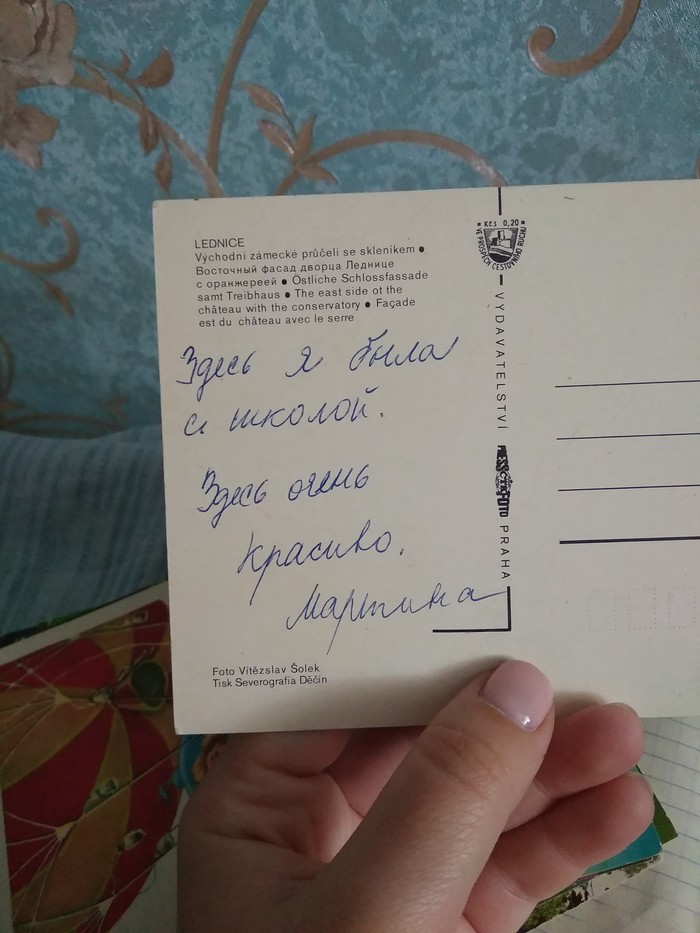 LEDNICE
Východní zámecké průčelí se skleníkem ●
Восточный фасад дворца Леднице
с оранжереей ● Östliche Schlossfassade
samt Treibhaus ● The east side ot the
château with the conservatory ● Façade
est du château avec le serre
Здесь я была
со школой.
Здесь очень
красиво.
Мартина
Foto Vítězslav Šolek
Tisk Severografia Děčín
Kčs 0,20
VE PROSPĚCH CESTOVNÍHO RUCHU
VYDAVATELSTVÍ
PRESSFOTO
PRAHA